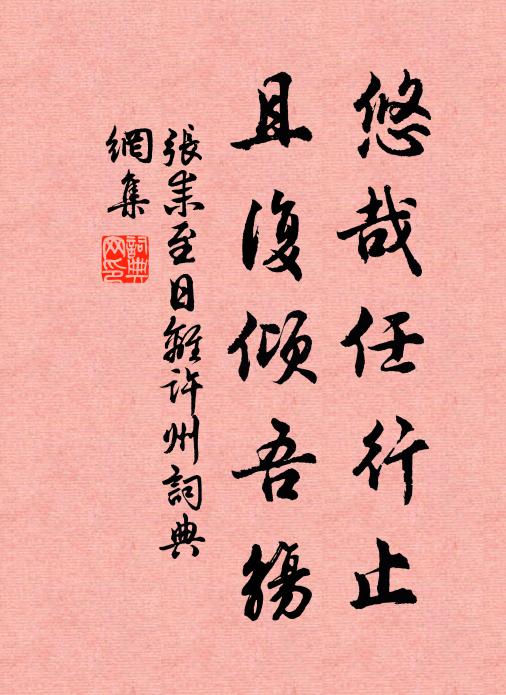 悠哉任行止
且復傾吾觴
張耒至日離許州詞典
網集
詞典
网印